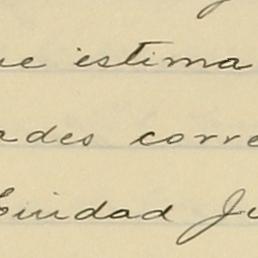 ue estima
ades corre
Ciudad Ju